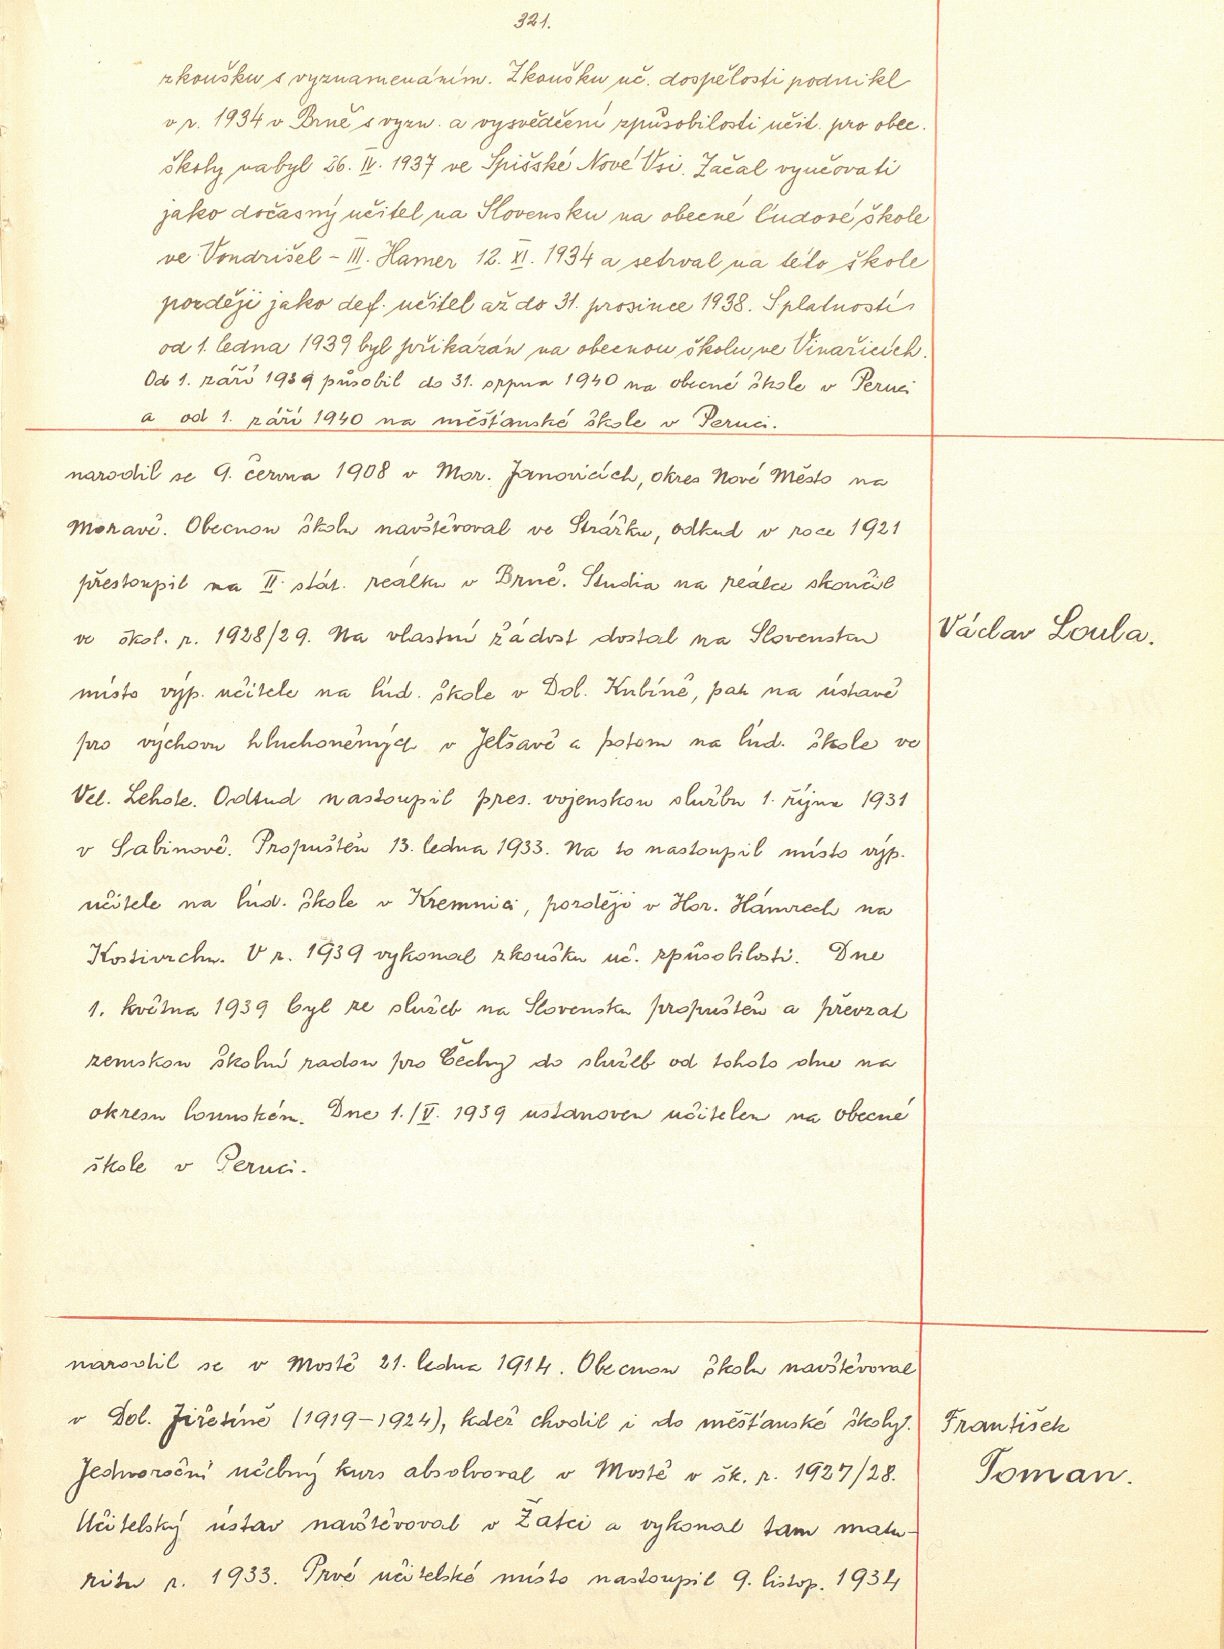 321.
zkoušku s vyznamenáním. Zkoušku uč. dospělosti podnikl
v r. 1934 v Brně s vyzn. a vysvědčení způsobilosti učit. pro obec.
školy nabyl 26. IV. 1937 ve Spišské Nové Vsi. Začal vyučovati
jako dočasný učitel na Slovensku na obecné ľudové škole
ve Vondrišel - III. Hamer 12. XI. 1934 a setrval na této škole
později jako def. učitel až do 31. prosince 1938. S platností
od 1. ledna 1939 byl přikázán na obecnou školu ve Vinařicích.
Od 1. září 1939 působil do 31. srpna 1940 na obecné škole v Peruci
a od 1. září 1940 na měšťanské škole v Peruci.
narodil se 9. června 1908 v Mor. Janovicích, okres Nové Město na
Moravě. Obecnou školu navštěvoval ve Strážku, odkud v roce 1921
přestoupil na II. stát. reálku v Brně. Studia na reálce skončil
ve škol. r. 1928/29. Na vlastní žádost dostal na Slovensku
Václav Loula.
místo výp. učitele na lid. škole v Dol. Kubíně, pak na ústavě
pro výchovu hluchoněmých v Jelšavě a potom na lid. škole ve
Vel. Lehote. Odtud nastoupil pres. vojenskou službu 1. října 1931
v Sabinově. Propuštěn 13. ledna 1933. Na to nastoupil místo výp.
učitele na lid. škole v Kremnici, později v Hor. Hámrech na
Kostivrchu. V r. 1939 vykonal zkoušku uč. způsobilosti. Dne
1. května 1939 byl ze služeb na Slovensku propuštěn a převzat
zemskou školní radou pro Čechy do služeb od tohoto dne na
okresu lounském. Dne 1./V. 1939 ustanoven učitelem na obecné
škole v Peruci.
narodil se v Mostě 21. ledna 1914. Obecnou školu navštěvoval
v Dol. Jiřetíně (1919-1924), kdež chodil i do měšťanské školy.
František
Jednoroční učebný kurs absolvoval v Mostě v šk. r. 1927/28.
Toman.
Učitelský ústav navštěvoval v Žatci a vykonal tam matu-
ritu r. 1933. Prvé učitelské místo nastoupil 9. listop. 1934